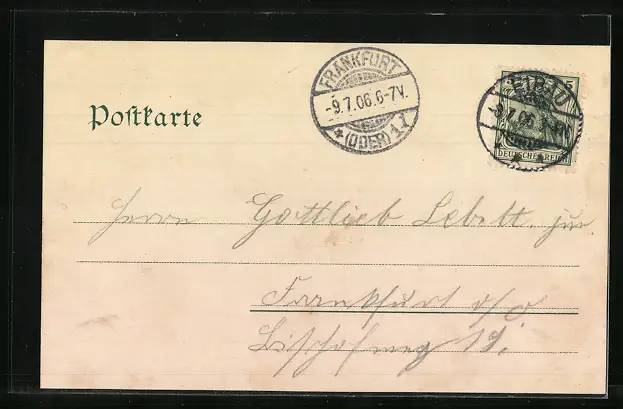 FRANKFURT
-9.7.06.6-7V.
* (ODER) 1 r
5
-8.7.06.
DEUTSCHES REICH
Postkarte
Herrn Gottlieb jun.
Frankfurt a/O
19i